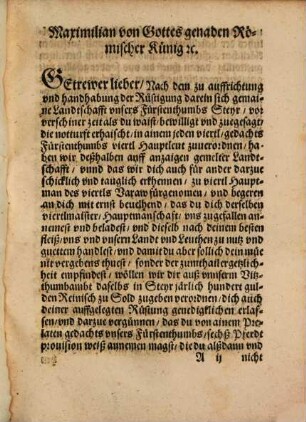 Maximilian von Gottes genaden Rö-
mischer Künig ꝛc.
GEtrewer lieber/ Nach dem zu auffrichtung
vnd handhabung der Rüstigung darein sich gemai-
ne Landtschafft vnsers Fürstenthumbs Steyr/ vor
verschiner zeit als du waist bewilligt vnd zugesagt/
die notturft erhaischt/ in ainem jeden viertl/ gedachts
Fürstenthumbs viertl Hauptleut zuuerordnen/ ha-
ben wir deßhalben auff anzaigen gemelter Landt-
schafft/ vnnd das wir dich auch für ander darzue
schicklich vnd tauglich erkhennen/ zu viertl Haupt-
man des viertls Varaw fürgenomen/ vnd begeren
an dich mit ernst beuelhend/ das du dich derselben
viertlmaister/ Hauptmanschafft/ vns zugefallen an-
nemest vnd beladest/ vnd dieselb nach deinem besten
fleiß/ vns vnd vnsern Landt vnd Leuthen zu nutz vnd
guettem handlest/ vnd damit du aber sollich dein mue
nit vergebens thuest/ sonder der zumthail ergetzlich-
heit empfindest/ wöllen wir dir auß vnserm Vitz-
thumbambt daselbs in Steyr järlich hundert gul-
den Reinisch zu Sold zugeben verordnen/ dich auch
deiner auffgelegten Rüstung genedigklichen erlas-
sen/ vnd darzue vergünnen/ das du von ainem Pre-
laten gedachts vnsers Fürstenthumbs/ sechß Pferdt
prouision weiß annemen magst/ die du alßdann vnd
A ij nicht